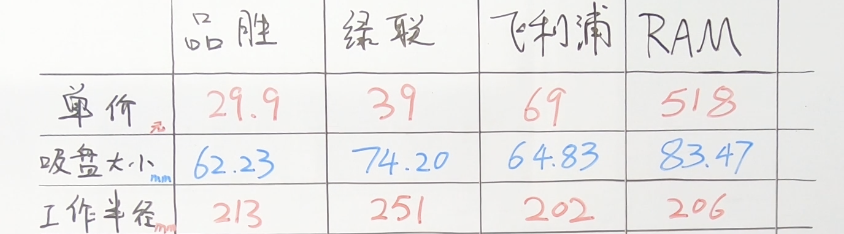 品胜 绿联 飞利浦 RAM
单价元 29.9 39 69 518
吸盘大小mm 62.23 74.20 64.83 83.47
工作半径mm 213 251 202 206